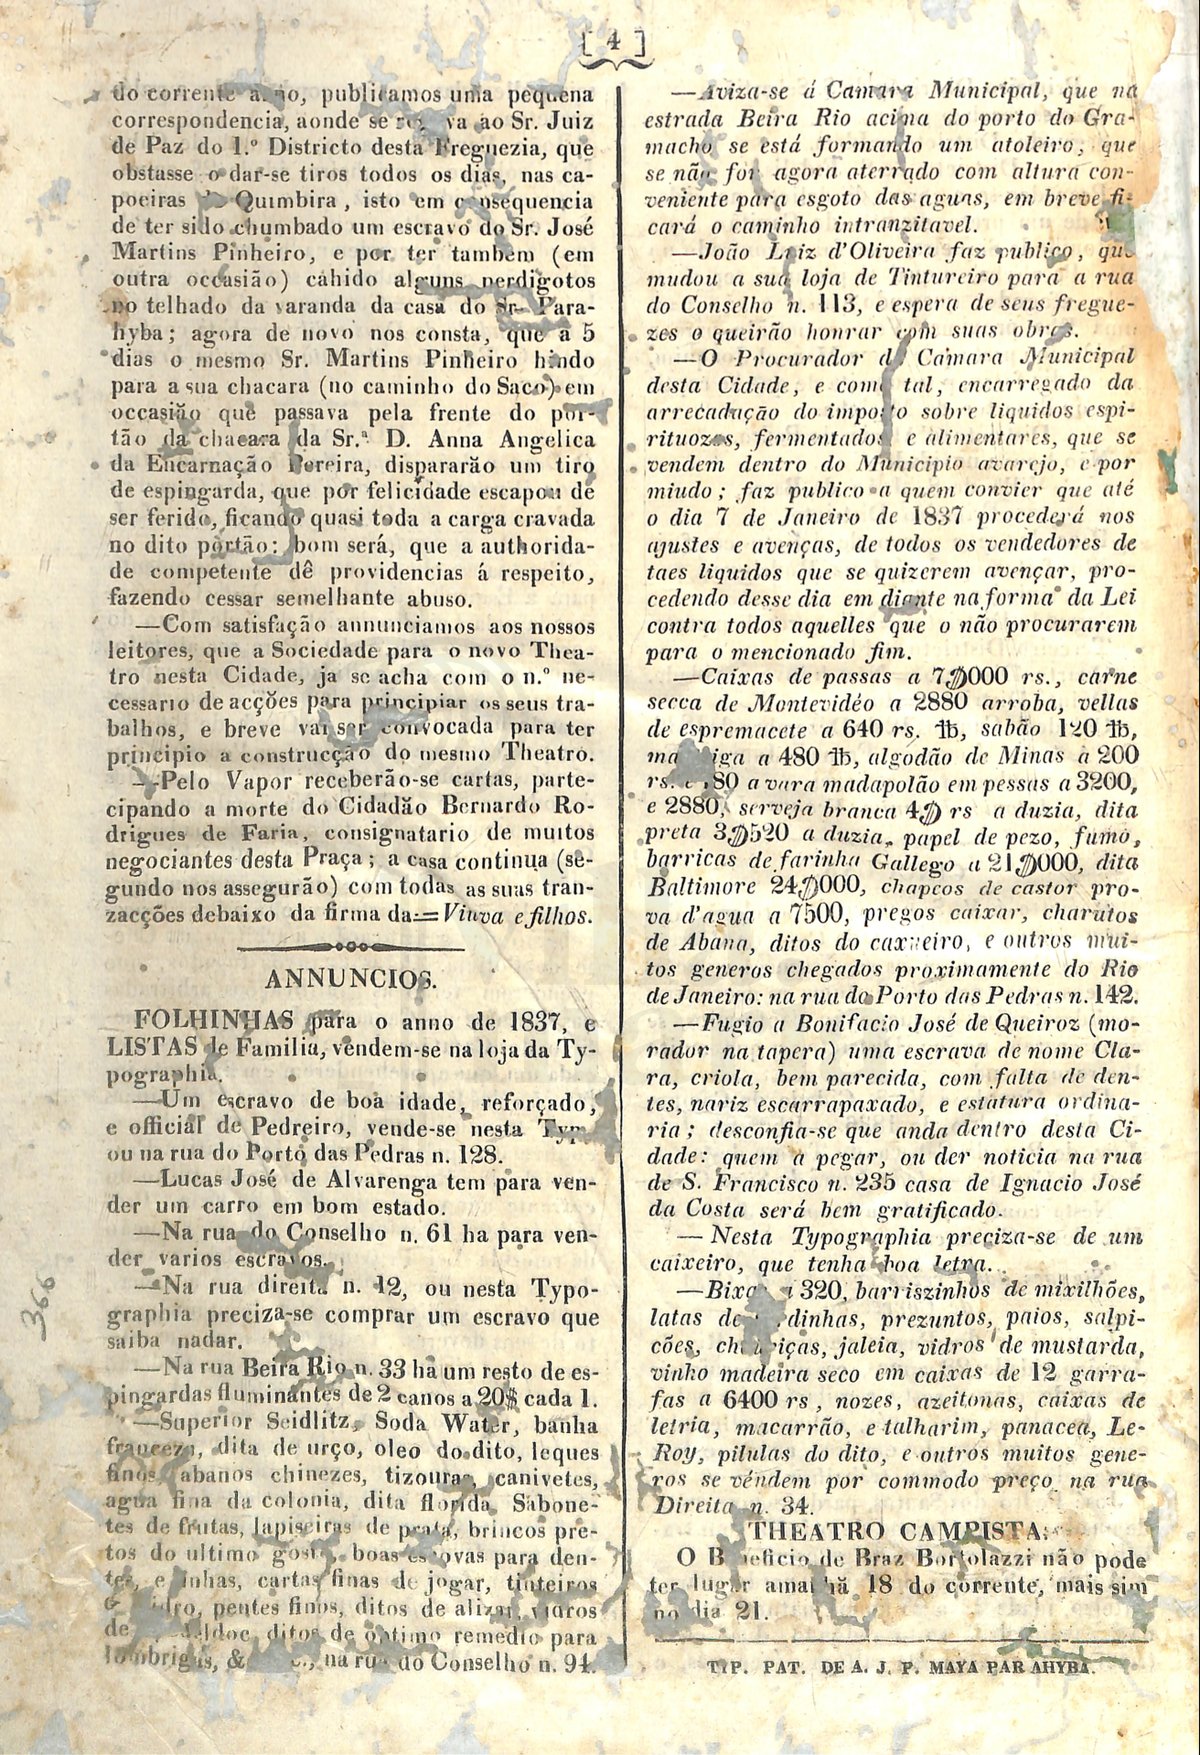 [ 4 ]
do corrente anno, publicamos uma pequena
correspondencia, aonde se va ao Sr. Juiz
de Paz do 1.º Districto desta Freguezia, que
obstasse o dar-se tiros todos os dias, nas ca-
poeiras Quimbira, isto em consequencia
de ter sido chumbado um escravo do Sr. José
Martins Pinheiro, e por ter tambem (em
outra occasião) cáhido alguns perdigotos
no telhado da varanda da casa do Sr. Para-
hyba; agora de novo nos consta, que a 5
dias o mesmo Sr. Martins Pinheiro hindo
para a sua chacara (no caminho do Saco) em
occasião que passava pela frente do por-
tão da chacara da Sr.ª D. Anna Angelica
da Encarnação Pereira, dispararão um tiro
de espingarda, que por felicidade escapou de
ser ferido, ficando quasi toda a carga cravada
no dito portão: bom será, que a authorida-
de competente dê providencias á respeito,
fazendo cessar semelhante abuso.
—Com satisfação annunciamos aos nossos
leitores, que a Sociedade para o novo Thea-
tro nesta Cidade, ja se acha com o n.º ne-
cessario de acções para principiar os seus tra-
balhos, e breve vai ser convocada para ter
principio a construcção do mesmo Theatro.
—Pelo Vapor receberão-se cartas, parte-
cipando a morte do Cidadão Bernardo Ro-
drigues de Faria, consignatario de muitos
negociantes desta Praça; a casa continua (se-
gundo nos assegurão) com todas as suas tran-
zacções debaixo da firma da=Viuva e filhos.
ANNUNCIOS.
FOLHINHAS para o anno de 1837, e
LISTAS de Familia, vendem-se na loja da Ty-
pographia.
—Um escravo de boa idade, reforçado,
e official de Pedreiro, vende-se nesta Typ.
ou na rua do Porto das Pedras n. 128.
—Lucas José de Alvarenga tem para ven-
der um carro em bom estado.
—Na rua do Conselho n. 61 ha para ven-
der varios escravos.
—Na rua direita n. 12, ou nesta Typo-
graphia preciza-se comprar um escravo que
saiba nadar.
—Na rua Beira Rio n. 33 ha um resto de es-
pingardas fluminantes de 2 canos a 20$ cada 1.
—Superior Seidlitz, Soda Water, banha
franceza, dita de urço, oleo do dito, leques
finos, abanos chinezes, tizouras, canivetes,
agua fina da colonia, dita florida, Sabone-
tes de frutas, lapiseiras de prata, brincos pre-
tos do ultimo gosto, boas escovas para den-
tes, e unhas, cartas finas de jogar, tinteiros
pentes finos, ditos de alizar, vidros
de ditos de optimo remedio para
lombrigas, & na rua do Conselho n. 94.
—Aviza-se á Camara Municipal, que na
estrada Beira Rio acima do porto do Gra-
macho se está formando um atoleiro, que
se não for agora aterrado com altura con-
veniente para esgoto das aguas, em breve fi-
cará o caminho intranzitavel.
—João Luiz d'Oliveira faz publico, que
mudou a sua loja de Tintureiro para a rua
do Conselho n. 113, e espera de seus fregue-
zes o queirão honrar com suas obras.
—O Procurador da Camara Municipal
desta Cidade, e como tal, encarregado da
arrecadação do imposto sobre liquidos espi-
rituozos, fermentados e alimentares, que se
vendem dentro do Municipio avarejo, e por
miudo; faz publico a quem convier que até
o dia 7 de Janeiro de 1837 procederá nos
ajustes e avenças, de todos os vendedores de
taes liquidos que se quizerem avençar, pro-
cedendo desse dia em diante na forma da Lei
contra todos aquelles que o não procurarem
para o mencionado fim.
—Caixas de passas a 7$000 rs., carne
secca de Montevidéo a 2880 arroba, vellas
de espremacete a 640 rs. ℔, sabão 120 ℔,
manteiga a 480 ℔, algodão de Minas a 200
rs. e 80 a vara madapolão em pessas a 3200,
e 2880, serveja branca 4$ rs a duzia, dita
preta 3$520 a duzia, papel de pezo, fumo,
barricas de farinha Gallego a 21$000, dita
Baltimore 24$000, chapeos de castor pro-
va d'agua a 7500, pregos caixar, charutos
de Abana, ditos do caxneiro, e outros mui-
tos generos chegados proximamente do Rio
de Janeiro: na rua do Porto das Pedras n. 142.
—Fugio a Bonifacio José de Queiroz (mo-
rador na tapera) uma escrava de nome Cla-
ra, criola, bem parecida, com falta de den-
tes, nariz escarrapaxado, e estatura ordina-
ria; desconfia-se que anda dentro desta Ci-
dade: quem a pegar, ou der noticia na rua
de S. Francisco n. 235 casa de Ignacio José
da Costa será bem gratificado.
— Nesta Typographia preciza-se de um
caixeiro, que tenha boa letra.
—Bixas a 320, barriszinhos de mixilhões,
latas de sardinhas, prezuntos, paios, salpi-
cões, chouriças, jaleia, vidros de mustarda,
vinho madeira seco em caixas de 12 garra-
fas a 6400 rs, nozes, azeitonas, caixas de
letria, macarrão, e talharim, panacea, Le-
Roy, pilulas do dito, e outros muitos gene-
ros se vendem por commodo preço na rua
Direita n. 34.
THEATRO CAMPISTA.
O Beneficio de Braz Bortolazzi não pode
ter lugar amanhã 18 do corrente, mais sim
no dia 21.
TYP. PAT. DE A. J. P. MAYA PARAHYBA.
366